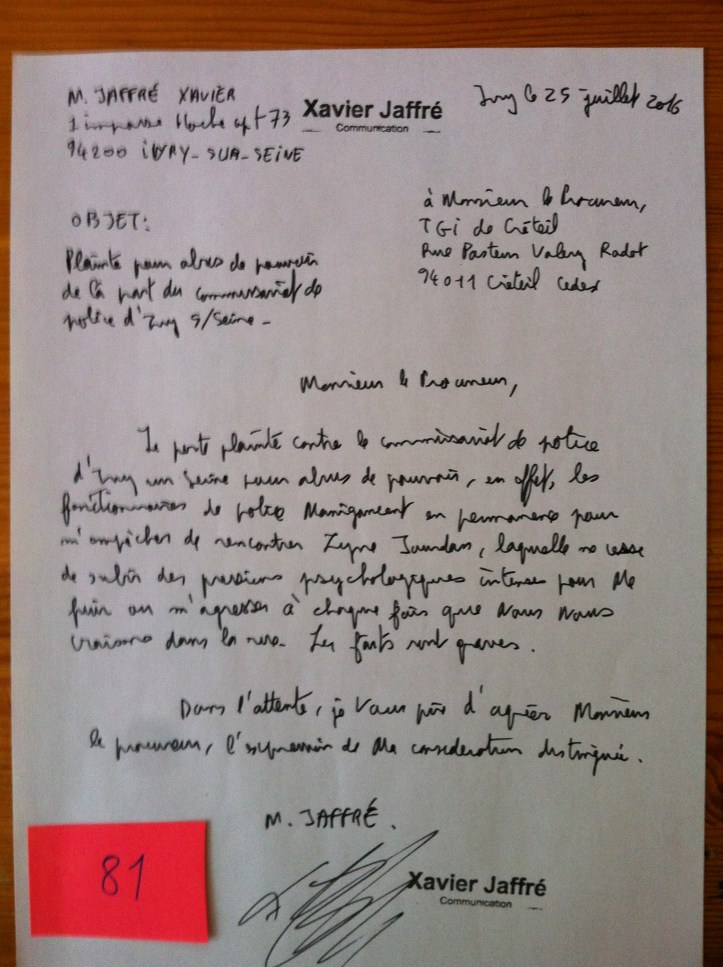 M. JAFFRÉ XAVIER
1 impasse Hoche apt 73
94200 iVRY-SUR-SEiNE
Xavier Jaffré
Communication
Ivry le 25 juillet 2016
à Monsieur le Procureur,
TGi de Créteil
Rue Pasteur Valery Radot
94011 Créteil Cedex
OBJET:
Plainte pour abus de pouvoir
de la part du commissariat de
police d'Ivry S/Seine-
Monsieur le Procureur,
Je porte plainte contre le commissariat de police
d'Ivry sur Seine pour abus de pouvoir, en effet, les
fonctionnaires de police Manigancent en permanence pour
m'empêcher de rencontrer, laquelle ne cesse
de subir des pressions psychologiques intenses pour Me
fuir ou m'agresser à chaque fois que Nous Nous
croisons dans la rue. Les faits sont graves.
Dans l'attente, je Vous prie d'agréer Monsieur
le procureur, l'expression de Ma considération distinguée.
M. JAFFRÉ.
Xavier Jaffré
Communication
81